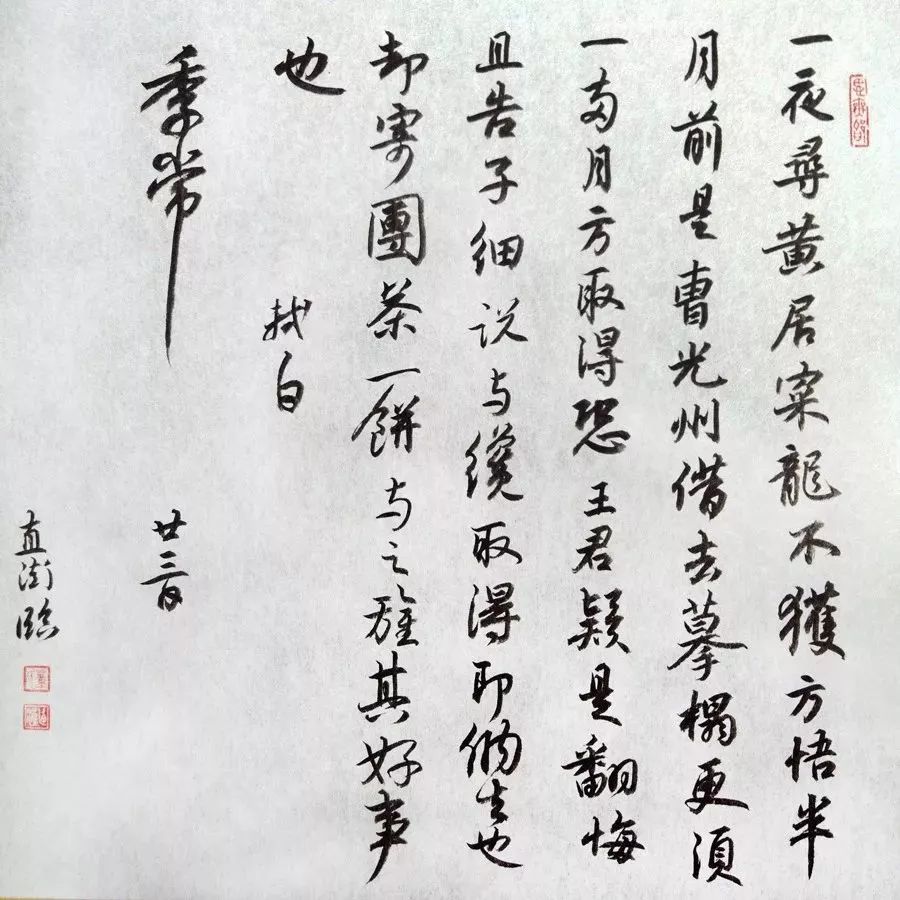 一夜尋黄居寀龍不獲方悟半
月前是曹光州借去摹榻更須
一两月方取得恐王君疑是翻悔
且告子细说与纔取得即納去也
却寄團茶一餅与之旌其好事
也
軾白
季常
廿三日
直街臨